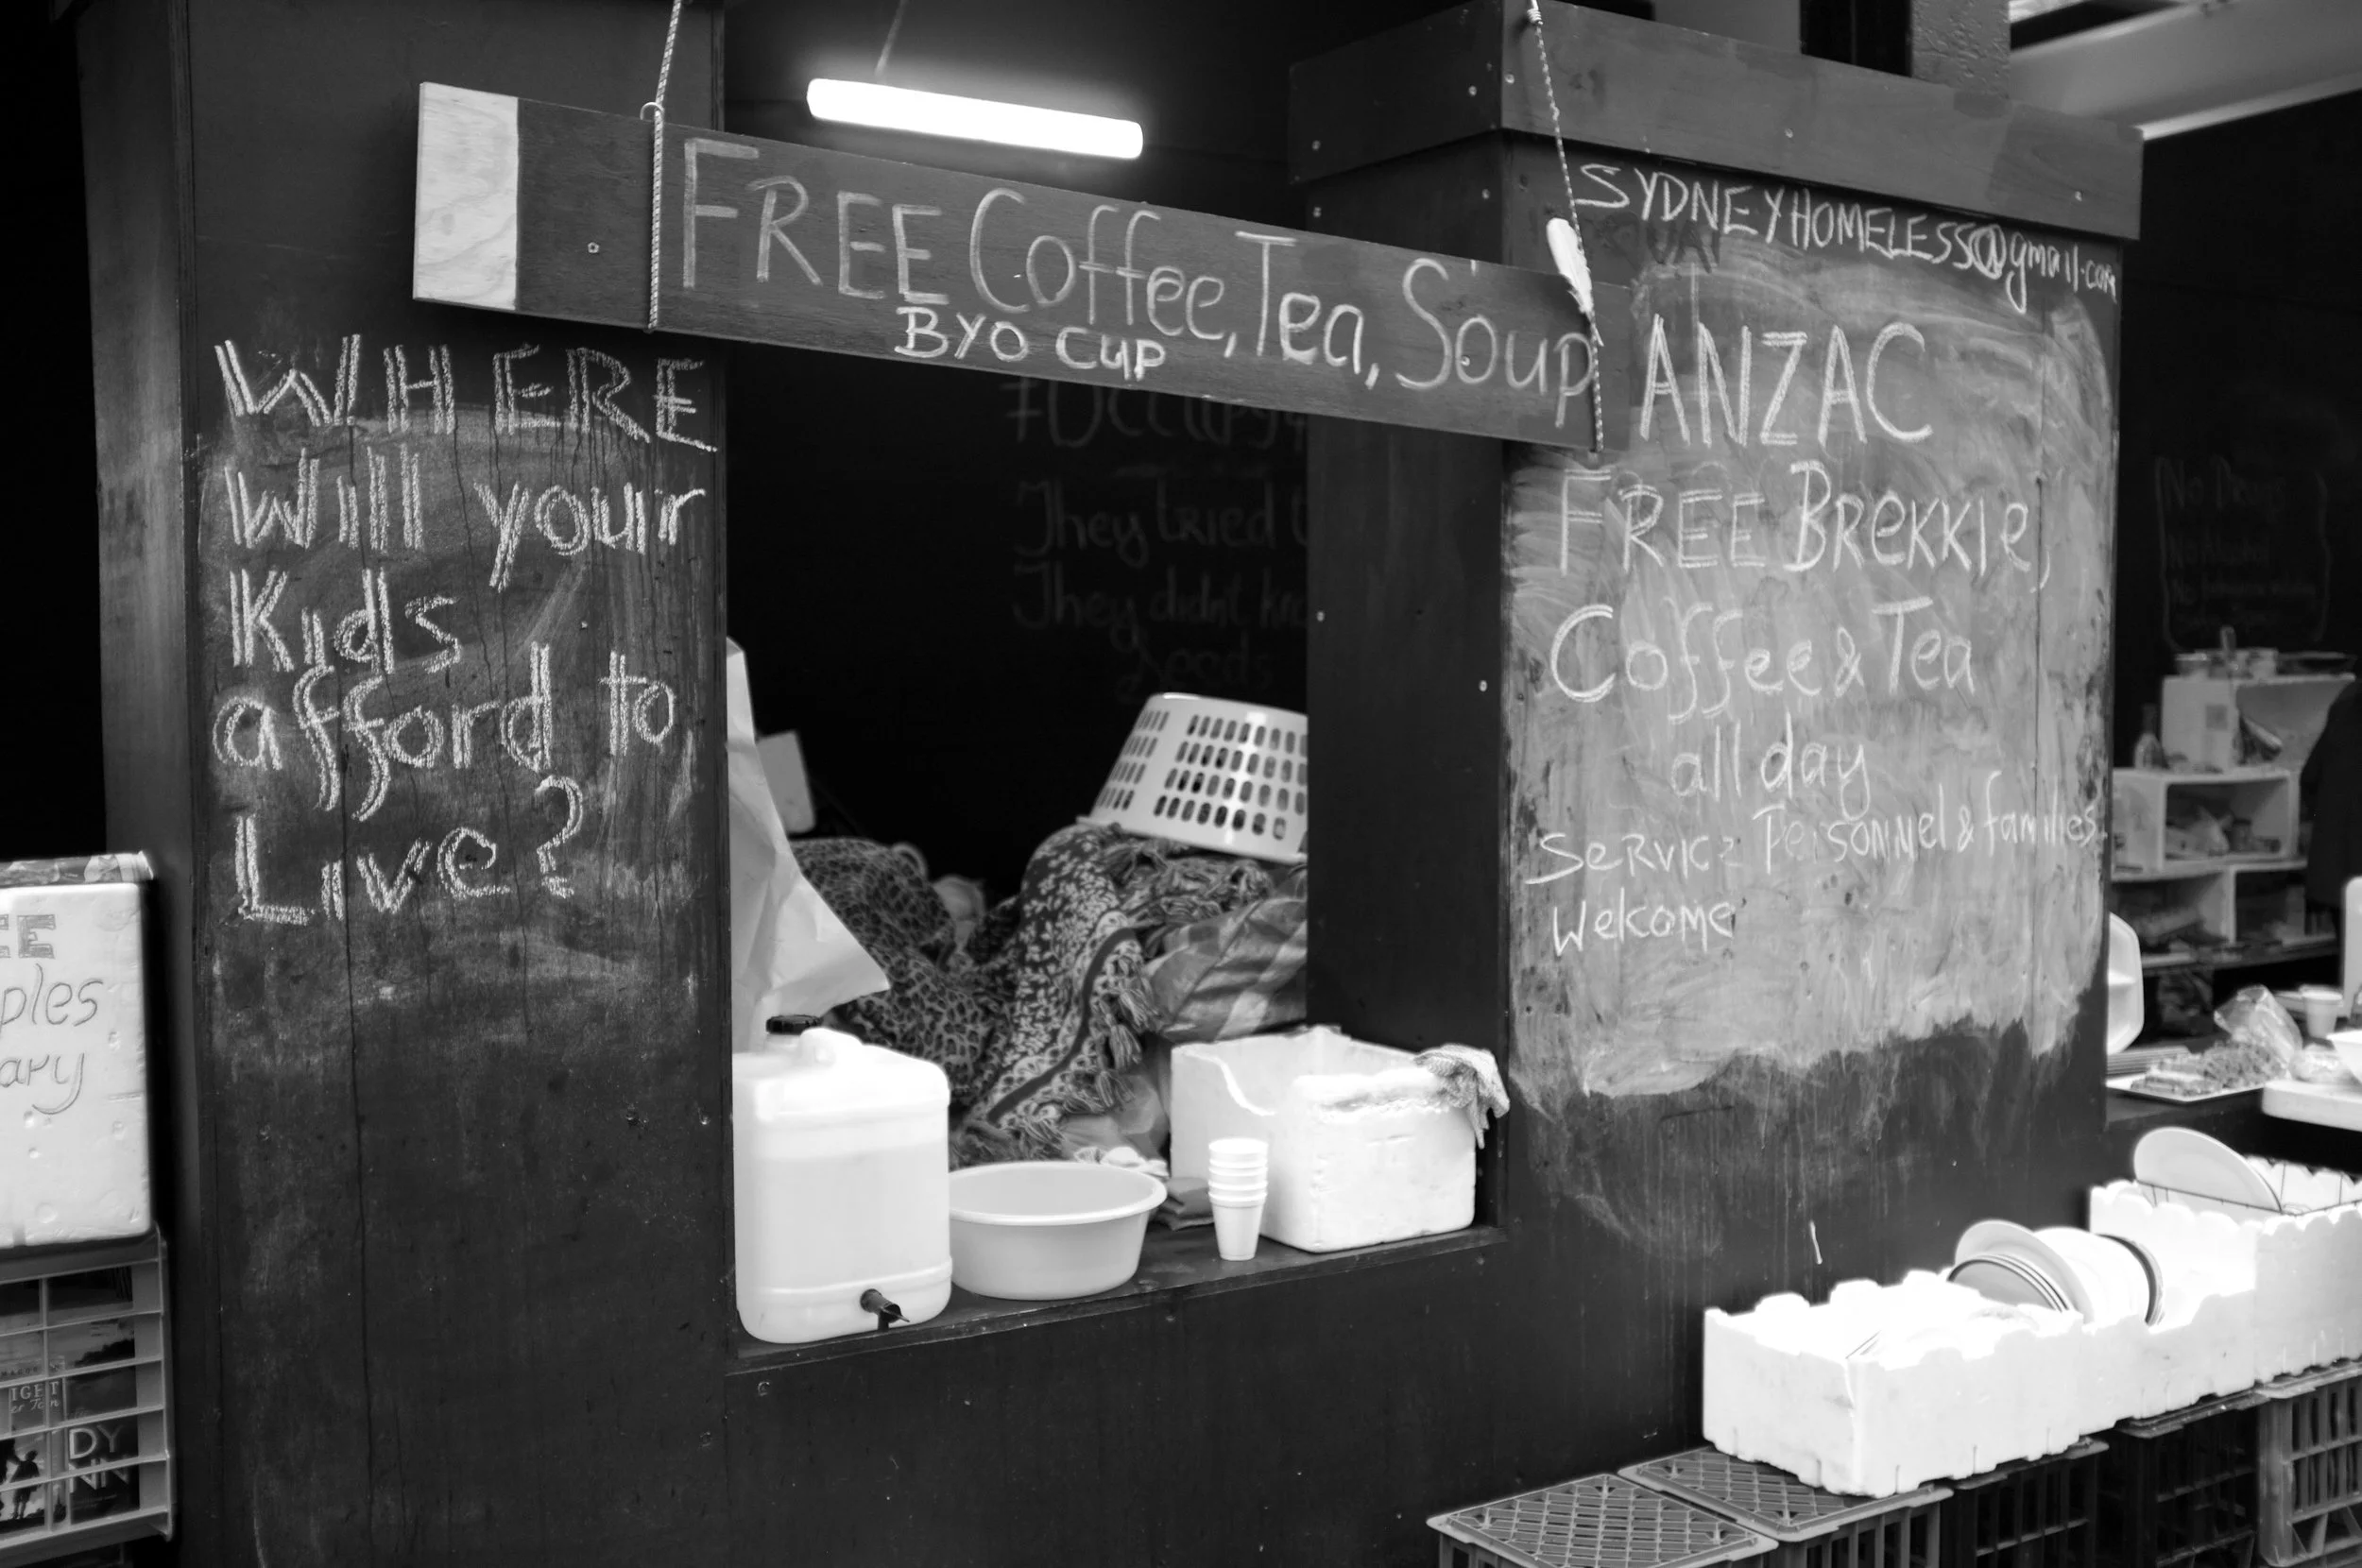 FREE Coffee, Tea, Soup
BYO CUP
WHERE
Will your
Kids
afford to
Live?
SYDNEYHOMELESS@gmail.com
ANZAC
FREE BREKKIE,
Coffee & Tea
all day
SERVICE Personnel & families
Welcome
They tried
They didn't
seeds
EE
ples
ary
IGET
DY
NN